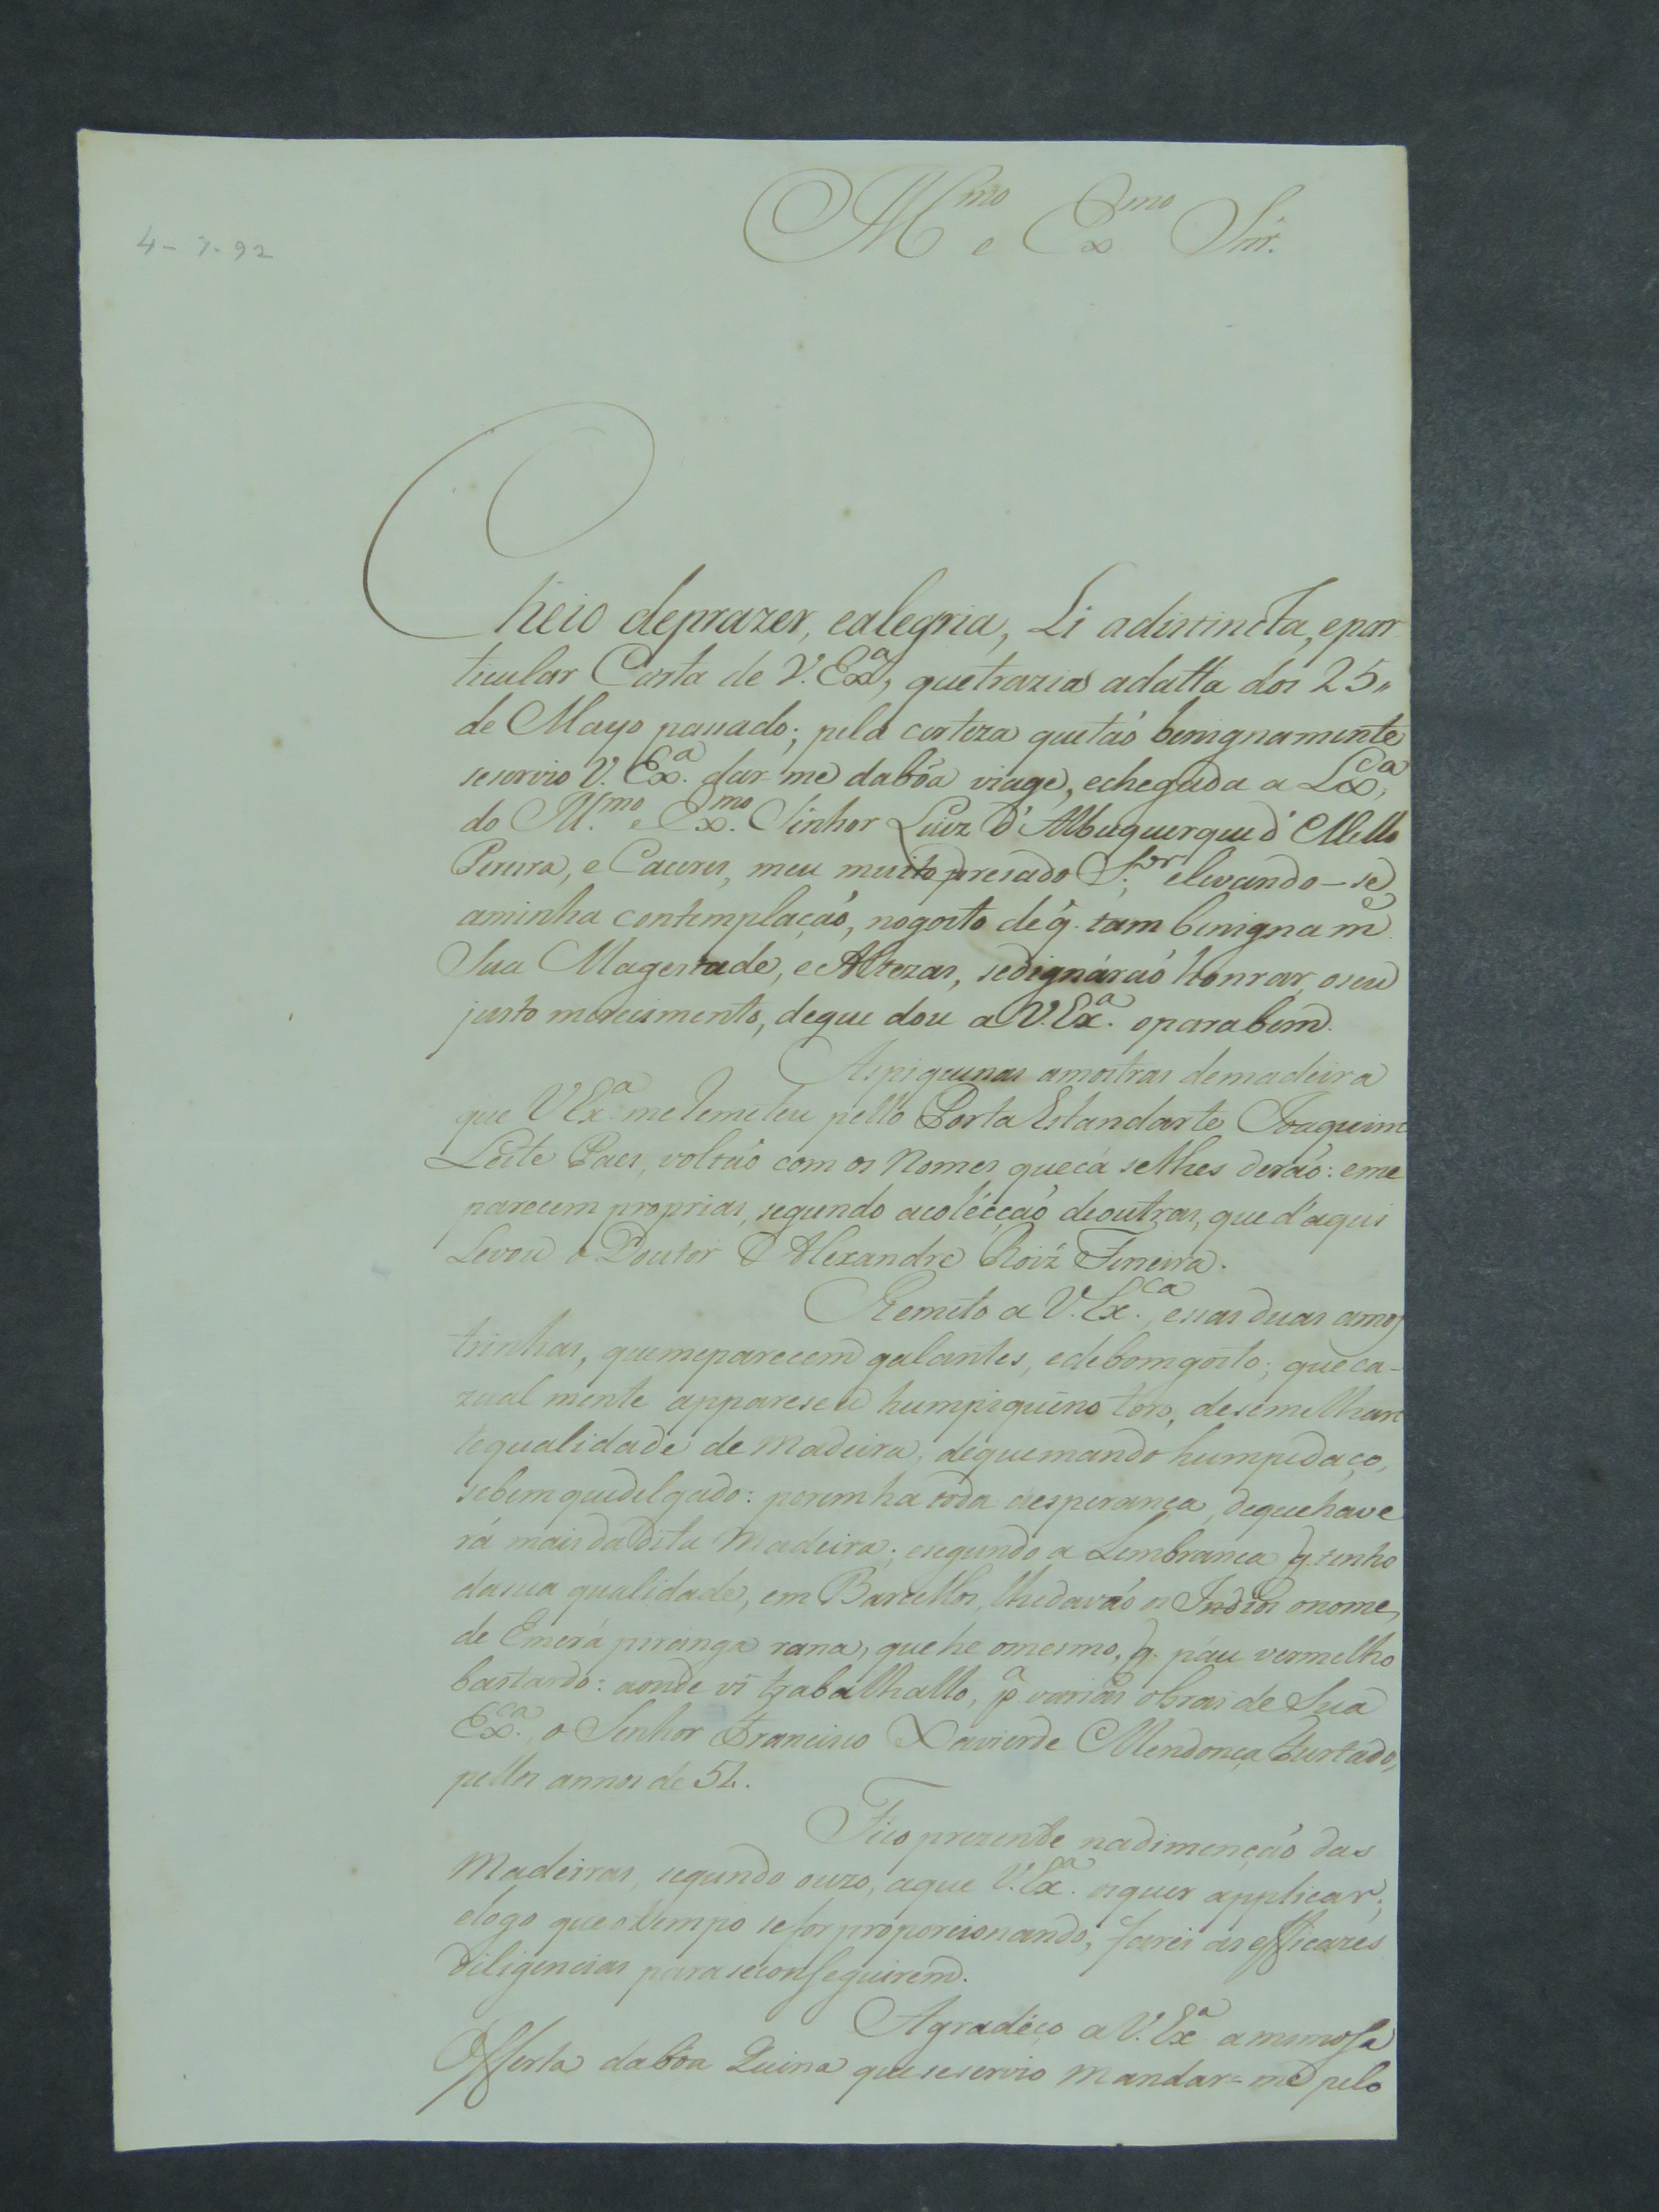 4-7-92
Ill.mo e Ex.mo Snr.
Cheio deprazer, ealegria, Li adistincta, epar
ticular Carta de V. Ex.a, quetrazia adatta dos 25,,
de Mayo passado; pela certeza quetaõ benignamente
seservio V. Ex.a dar-me dabôa viage, echegada a Lx.a,
do Ill.mo e Ex.mo Sinhor Luiz d'Albuquerque d'Mello
Pereira, e Caceres, meu muito presado S.or, elevando-se,
aminha contemplaçaõ, nogosto de q̃. tam benignam.e
Sua Magestade, e Altezas, sedignáraõ honrar, oseu
justo merecimento, deque dou a V. Ex.a. oparabem.
Aspiquenas amostras demadeira
que V Ex.a me Remeteu pello Porta Estandarte Joaquim
Leite Paes, voltaõ com os Nomes, quecá selhes deraõ: eme
parecem proprias, segundo acolécçaõ deoutras, que d'aqui
Levou o Doutor Alexandre Roiz Ferreira.
Remeto a V. Ex.ca, essas duas amos
trinhas, quemeparecem galantes, edebomgosto; queca-
zual mente appareseu humpiquêno toro, desemelhan
tequalidade de Madeira; dequemando humpedaço,
sebemquedelgado: poremha toda aesperança, dequehave
rá mais dadita Madeira; esegundo a Lembrança q. tenho
dasua qualidade, em Barcellos, lhedavaõ os Indios onome,
de Emerá piranga rana, quehe omesmo, q. páu vermelho
bastardo: aonde vi trabalhallo, p.a varias obras de Sua
Ex.ca o Senhor Francisco Xavierde Mendonça Furtado,
pellos annos de 54.
Fico prezente nadimençaõ das
Madeiras, segundo ouzo, aque V. Ex.a. asquer applicar;
elogo queotempo sefor proporcionando, farei as efficazes
diligencias paraseconseguirem.
Agradéço a V. Ex.a amimosa
Offerta dabôa Quina que seservio mandar=me pelo